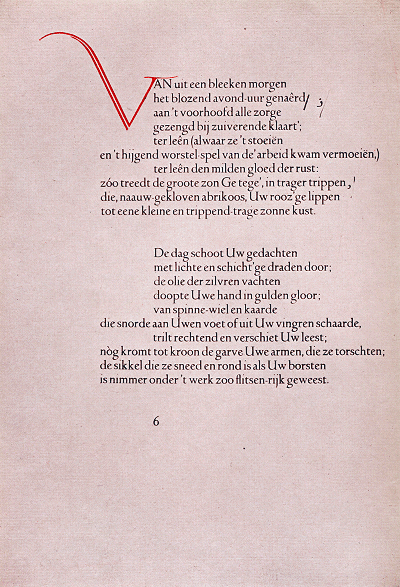 VAN uit een bleeken morgen
het blozend avond-uur genaêrd
aan 't voorhoofd alle zorge
gezengd bij zuiverende klaart';
ter leên (alwaar ze 't stoeiën
en 't hijgend worstel-spel van de' arbeid kwam vermoeiën,)
ter leên den milden gloed der rust:
zóo treedt de groote zon Ge tege', in trager trippen,
die, naauw-gekloven abrikoos, Uw rooz'ge lippen
tot eene kleine en trippend-trage zonne kust.
De dag schoot Uw gedachten
met lichte en schicht'ge draden door;
de olie der zilvren vachten
doopte Uwe hand in gulden gloor;
van spinne-wiel en kaarde
die snorde aan Uwen voet of uit Uw vingren schaarde,
trilt rechtend en verschiet Uw leest;
nòg kromt tot kroon de garve Uwe armen, die ze torschten;
de sikkel die ze sneed en rond is als Uw borsten
is nimmer onder 't werk zoo flitsen-rijk geweest.
6